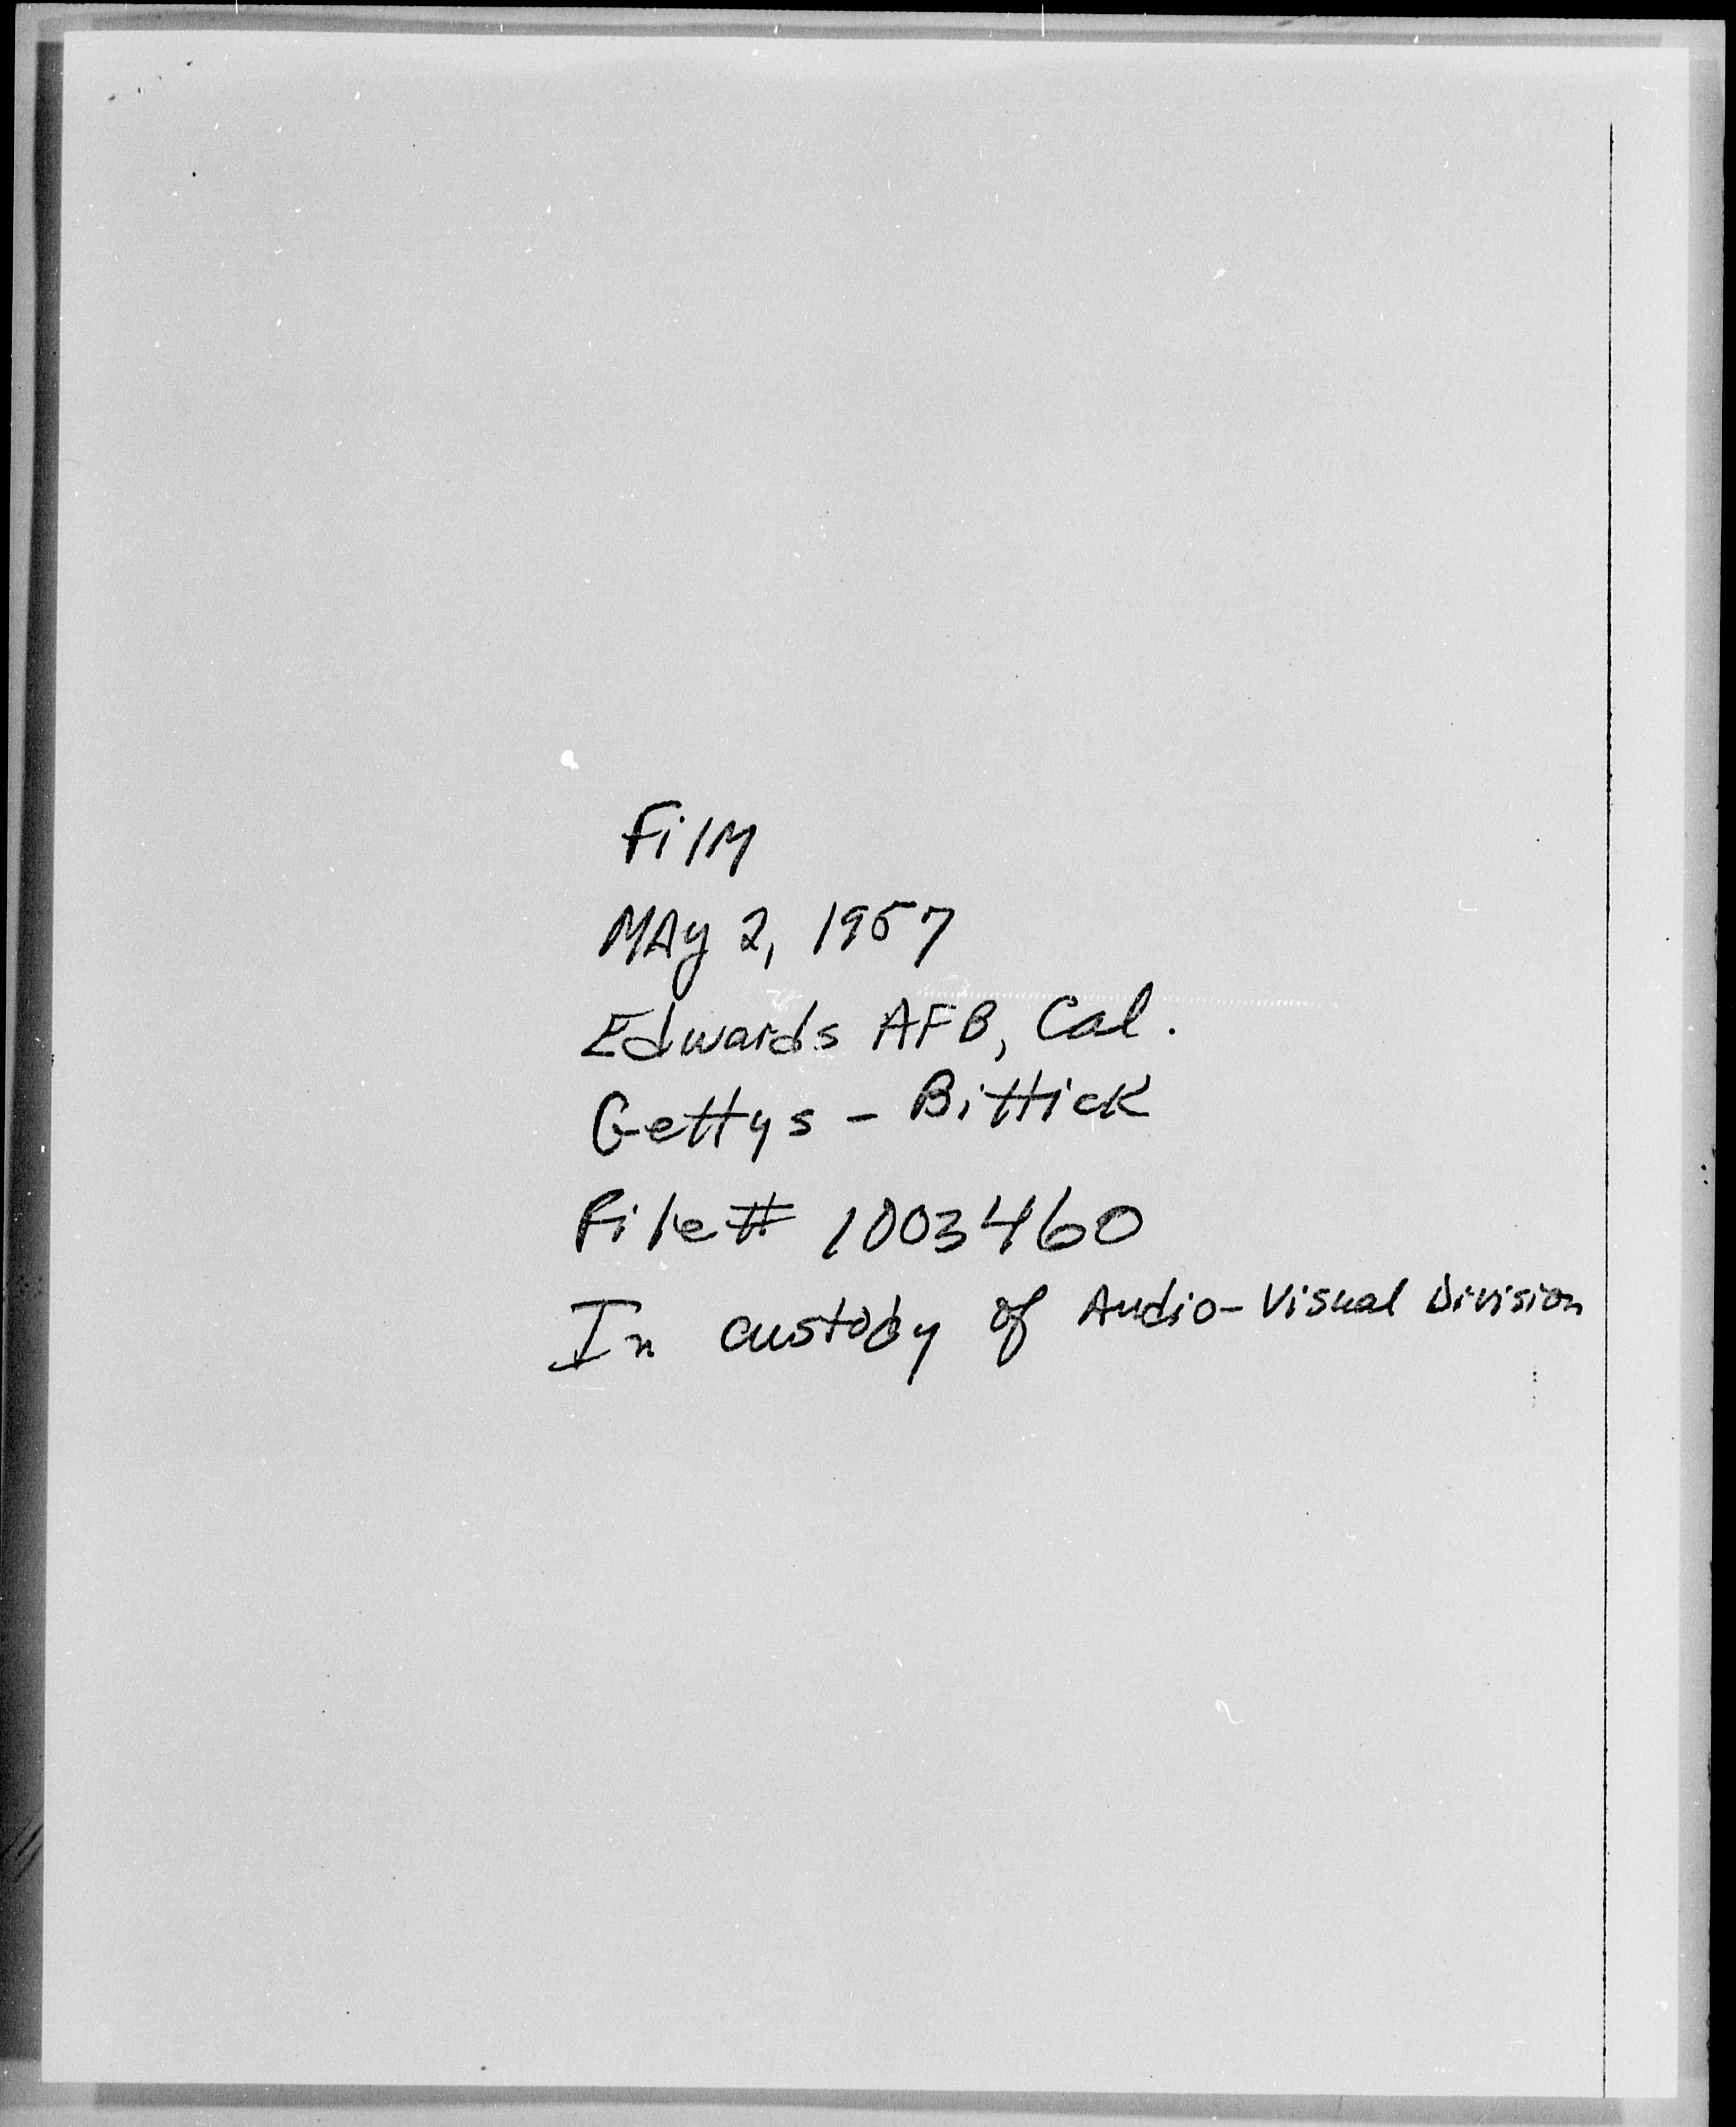 Film
MAy 2, 1957
Edwards AFB, Cal.
Gettys - Bittick
File # 1003460
In custody of Audio-Visual Division